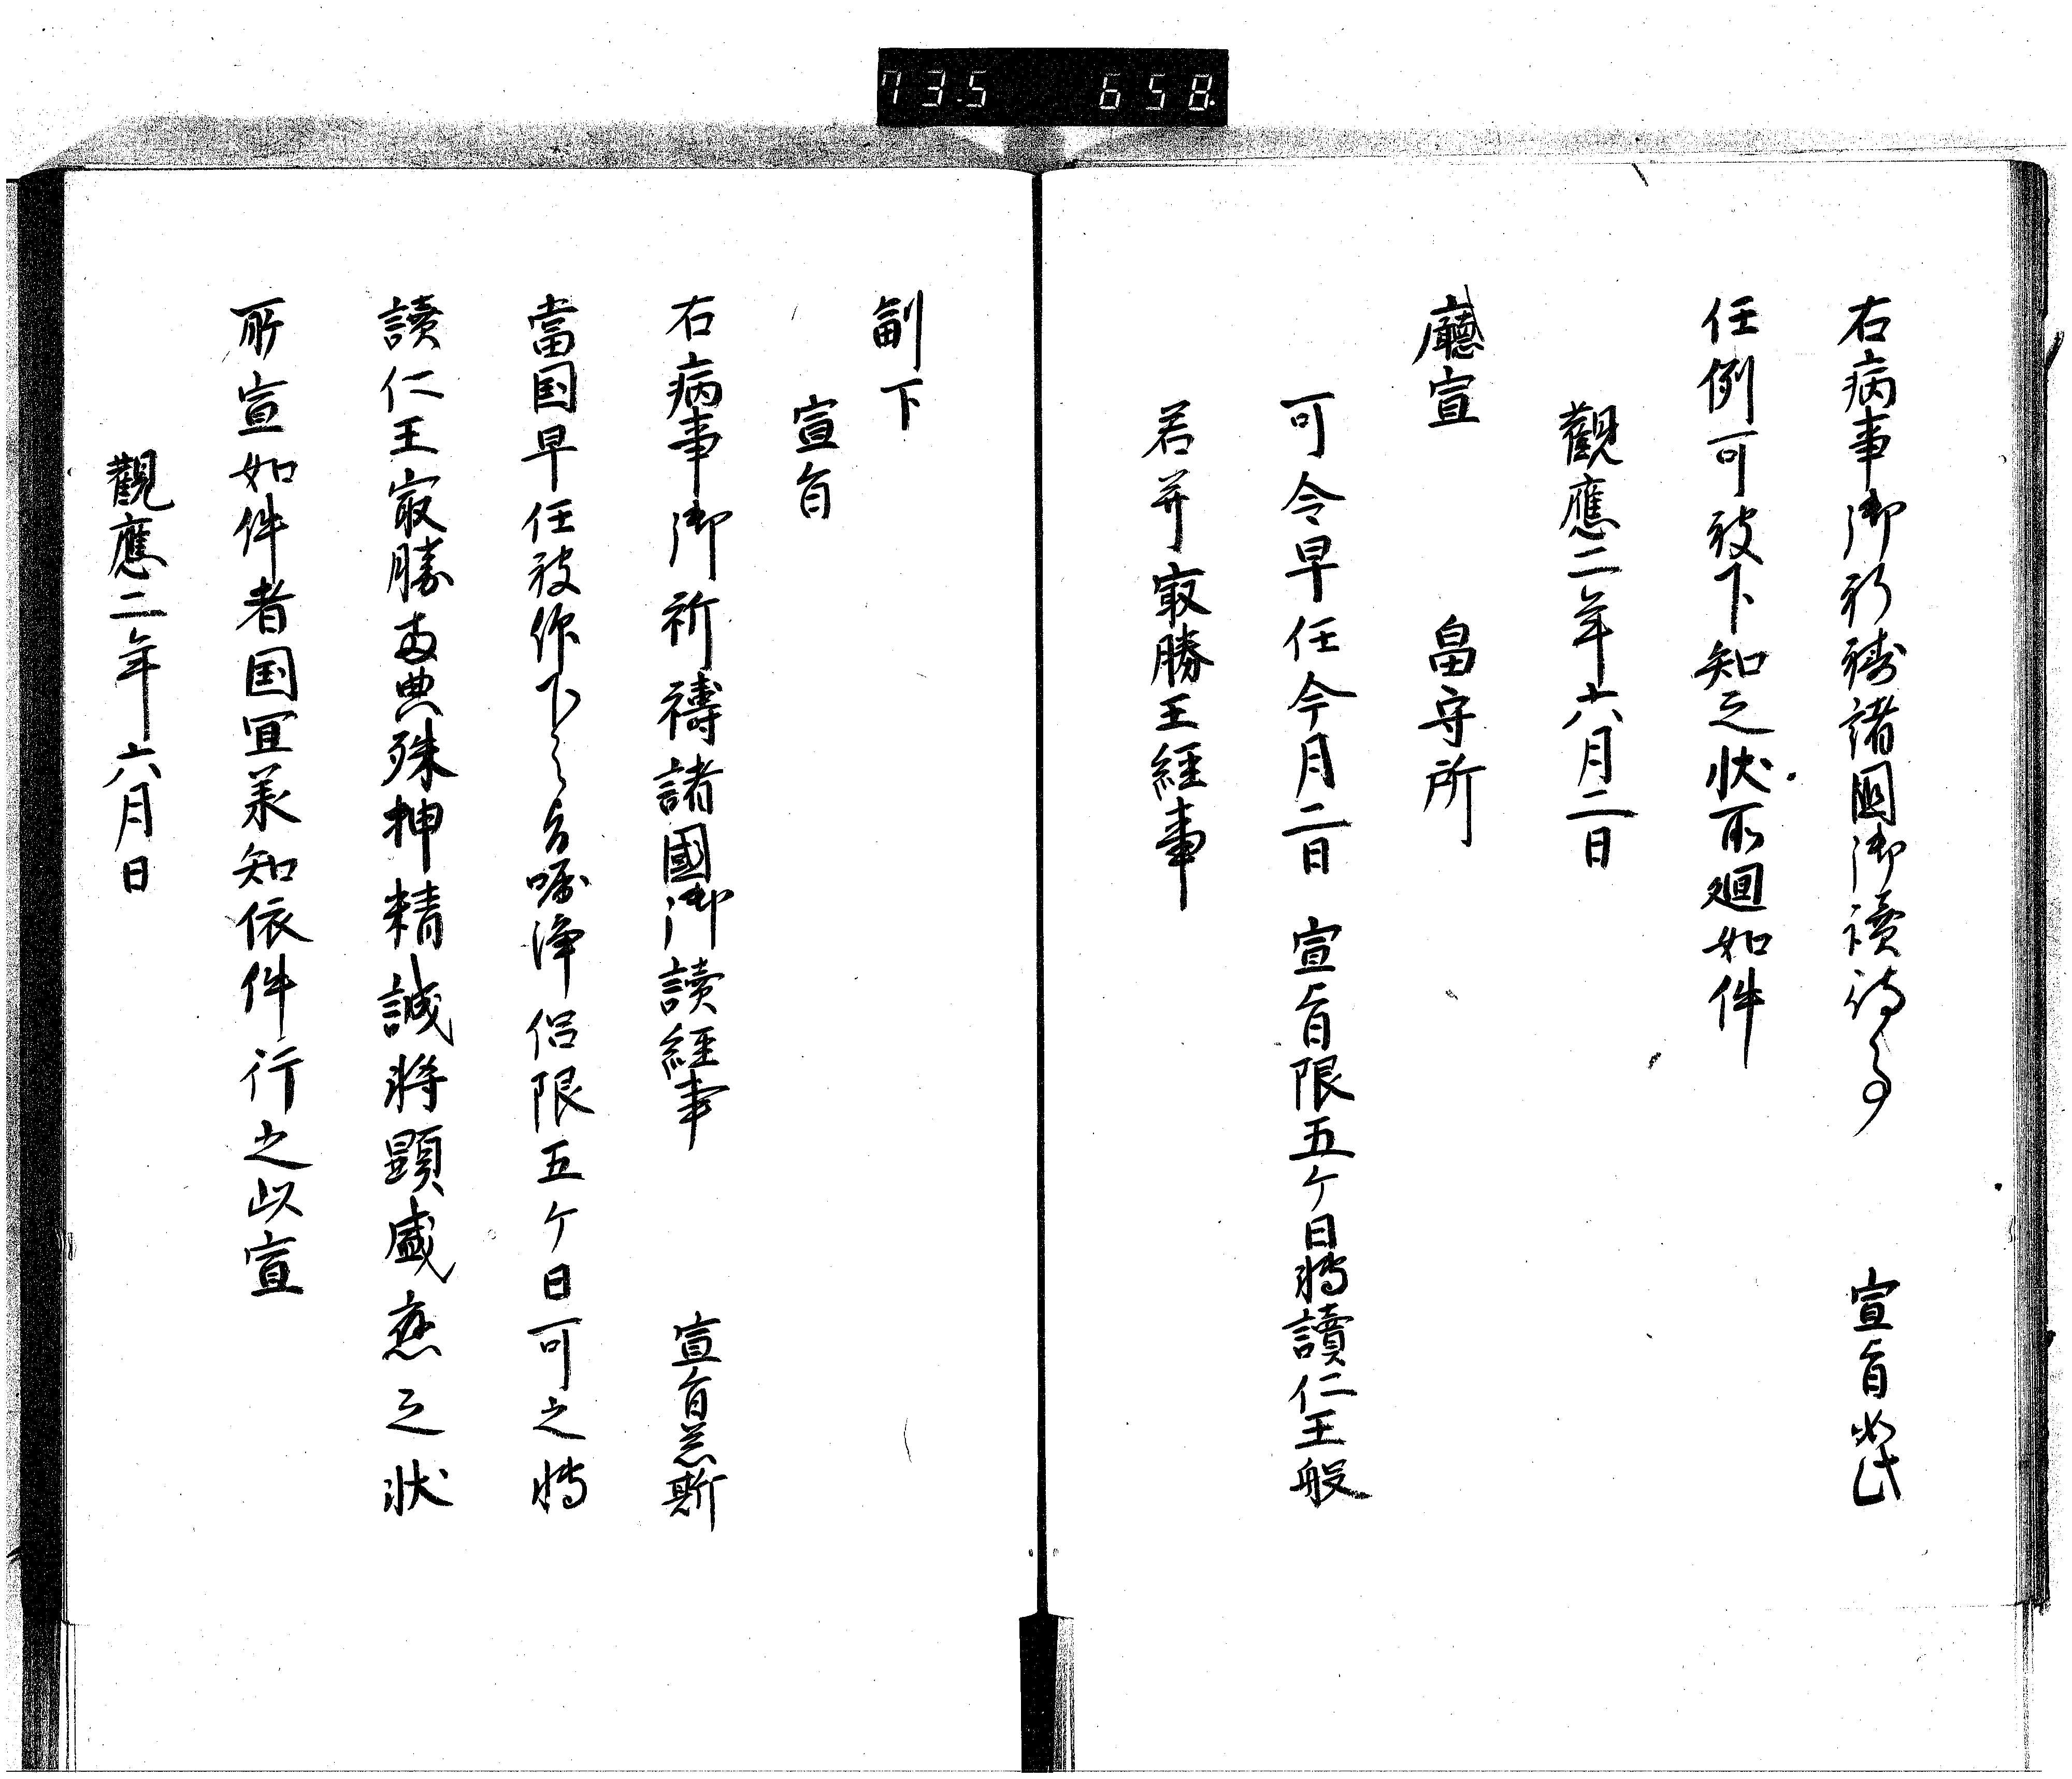 73.5 658.
右病事御祈禱諸國御讀誦事 宣旨如此
任例可被下知之状所廻如件
觀應二年六月二日
廳宣 畠守所
可令早任今月二日 宣旨限五ケ日轉讀仁王般
若并冣勝王經事
副下
宣旨
右病事御祈禱諸國御讀経事 宣旨
當国早任被仰下之旨嘱淨侣限五ケ日可之轉
讀仁王冣勝両典殊抽精誠将顕感應之状
所宣如件者国宜羕知依件行之以宣
觀應二年六月日